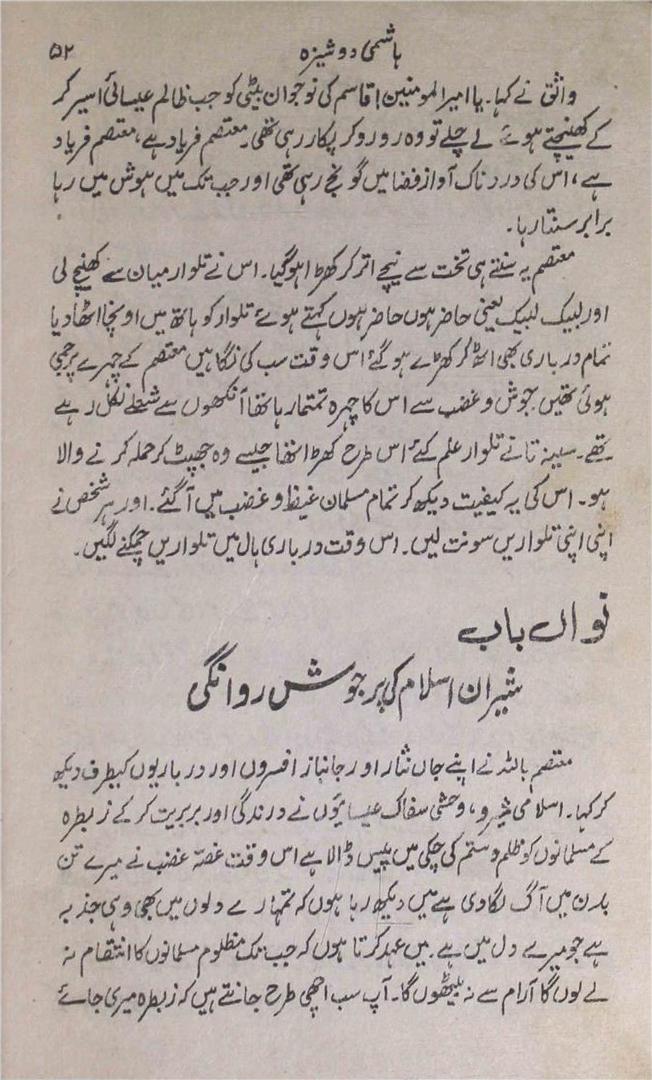 ہاشمی دوشیزہ ۵۲
واثق نے کہا۔ یا امیرالمومنین! قاسم کی نوجوان بیٹی کو جب ظالم عیسائی اسیر کر
کے کھینچتے ہوئے لے چلے تو وہ رو رو کر پکار رہی تھی۔ معتصم فریاد ہے، معتصم فریاد
ہے، اس کی دردناک آواز فضا میں گونج رہی تھی اور جب تک میں ہوش میں رہا
برابر سنتا رہا۔
معتصم یہ سنتے ہی تخت سے نیچے اتر کر کھڑا ہو گیا۔ اس نے تلوار میان سے کھینچ لی
اور لبیک لبیک یعنی حاضر ہوں حاضر ہوں کہتے ہوئے تلوار کو ہاتھ میں اونچا اٹھا دیا
تمام درباری بھی اٹھ کر کھڑے ہو گئے اس وقت سب کی نگاہیں معتصم کے چہرے پر جمی
ہوئی تھیں جوش و غضب سے اس کا چہرہ تمتما رہا تھا آنکھوں سے شعلے نکل رہے
تھے۔ سینہ تانے تلوار علم کئے اس طرح کھڑا تھا جیسے وہ جھپٹ کر حملہ کرنے والا
ہو۔ اس کی یہ کیفیت دیکھ کر تمام مسلمان غیظ و غضب میں آ گئے۔ اور ہر شخص نے
اپنی اپنی تلواریں سونت لیں۔ اس وقت درباری ہال میں تلواریں چمکنے لگیں۔
نواں باب
شیران اسلام کی پر جوش روانگی
معتصم باللہ نے اپنے جاں نثار اور جانباز افسروں اور درباریوں کیطرف دیکھ
کر کہا۔ اسلامی شیرو، وحشی سفاک عیسائیوں نے درندگی اور بربریت کر کے زبطرہ
کے مسلمانوں کو ظلم و ستم کی چکی میں پیس ڈالا ہے اس وقت غصہ غضب نے میرے تن
بدن میں آگ لگا دی ہے میں دیکھ رہا ہوں کہ تمہارے دلوں میں بھی وہی جذبہ
ہے جو میرے دل میں ہے۔ میں عہد کرتا ہوں کہ جب تک مظلوم مسلمانوں کا انتقام نہ
لے لوں گا آرام سے نہ بیٹھوں گا۔ آپ سب اچھی طرح جانتے ہیں کہ زبطرہ میری جائے